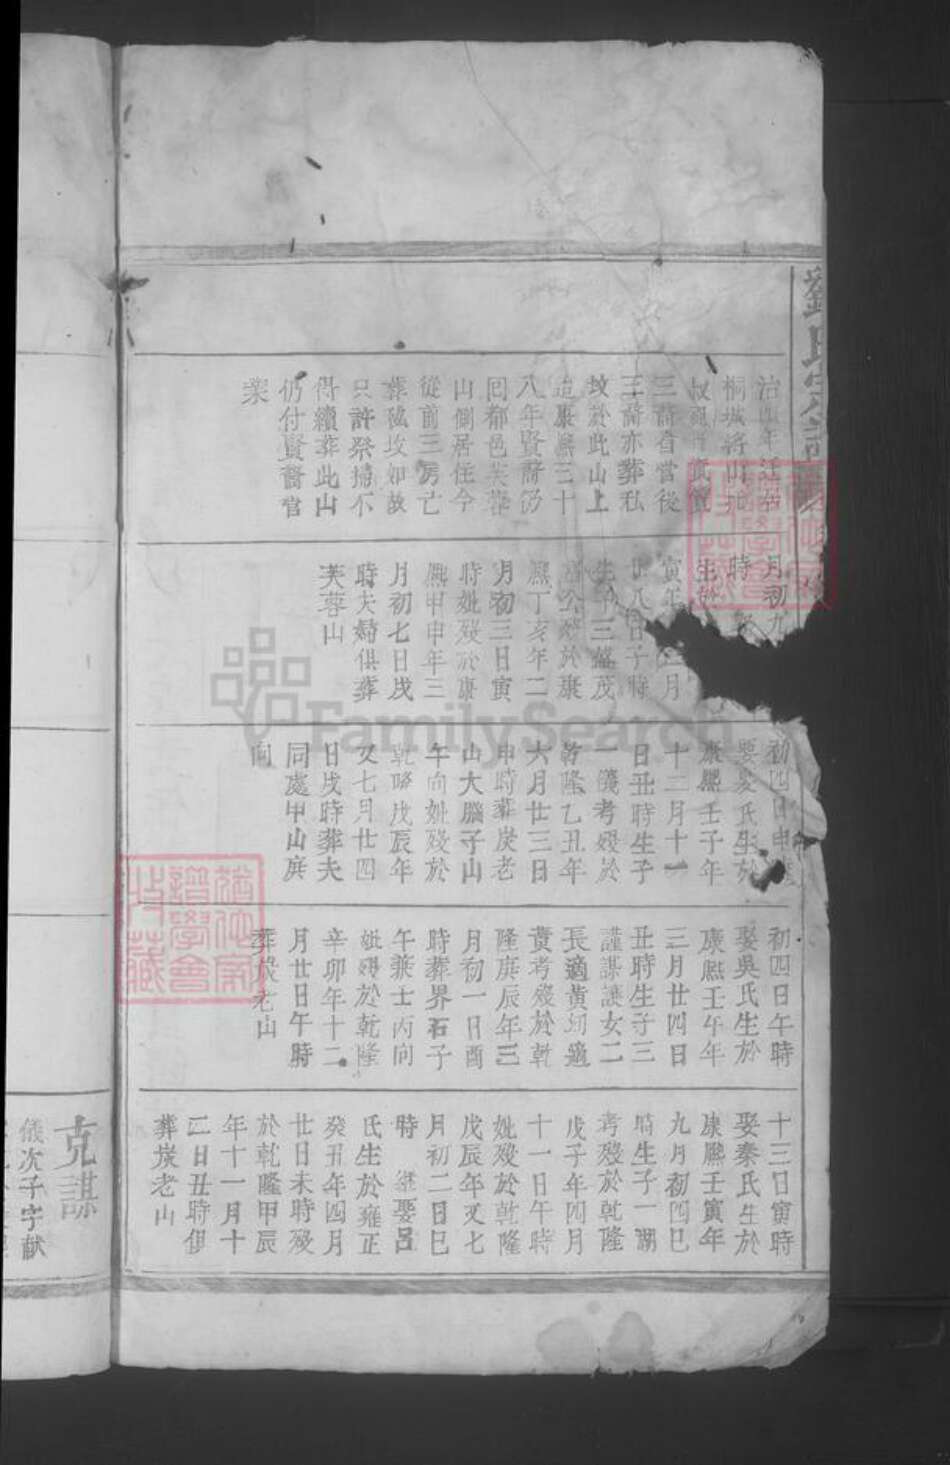 劉氏宗譜
桐城將山
三裔肓當後
三裔亦葬私
坟於此山上
迨康熙三十
八年賢裔仍
囘都邑芙蓉
山側居住今
從前三房亡
葬磁坟如故
只許祭掃不
得續葬此山
仍付賢裔官
業
月初九
時
生於
寅年 月
廿八日子時
生子三盛茂
富公殁於康
熙丁亥年二
月初三日寅
時妣殁於康
熙甲申年三
月初七日戌
時夫婦俱葬
芙蓉山
初四日申
娶吳氏生於
康熙壬子年
十二月十一
日丑時生子
一儀考殁於
乾隆乙丑年
六月廿三日
申時葬炭老
山大腦子山
午向妣殁於
乾隆戊辰年
又七月廿四
日戌時葬夫
同處甲山庚
向
初四日午時
娶吳氏生於
康熙壬午年
三月廿四日
丑時生子三
謹謀謨女二
長適黄次適
黄考殁於乾
隆庚辰年三
月初一日酉
時葬界石子
午兼壬丙向
妣殁於乾隆
辛卯年十二
月廿日午時
葬炭老山
十三日寅時
娶秦氏生於
康熙壬寅年
九月初四巳
時生子一謝
考殁於乾隆
戊子年四月
十一日午時
妣殁於乾隆
戊辰年又七
月初二日巳
時 繼娶呂
氏生於雍正
癸丑年四月
廿日未時殁
於乾隆甲辰
年十一月十
二日丑時俱
葬炭老山
克謀
儀次子字献
FamilySearch